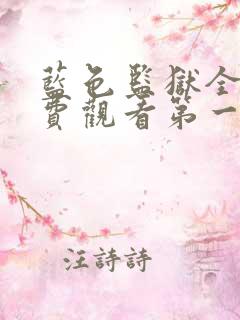 藍色監獄全
費觀看第一
汪詩詩